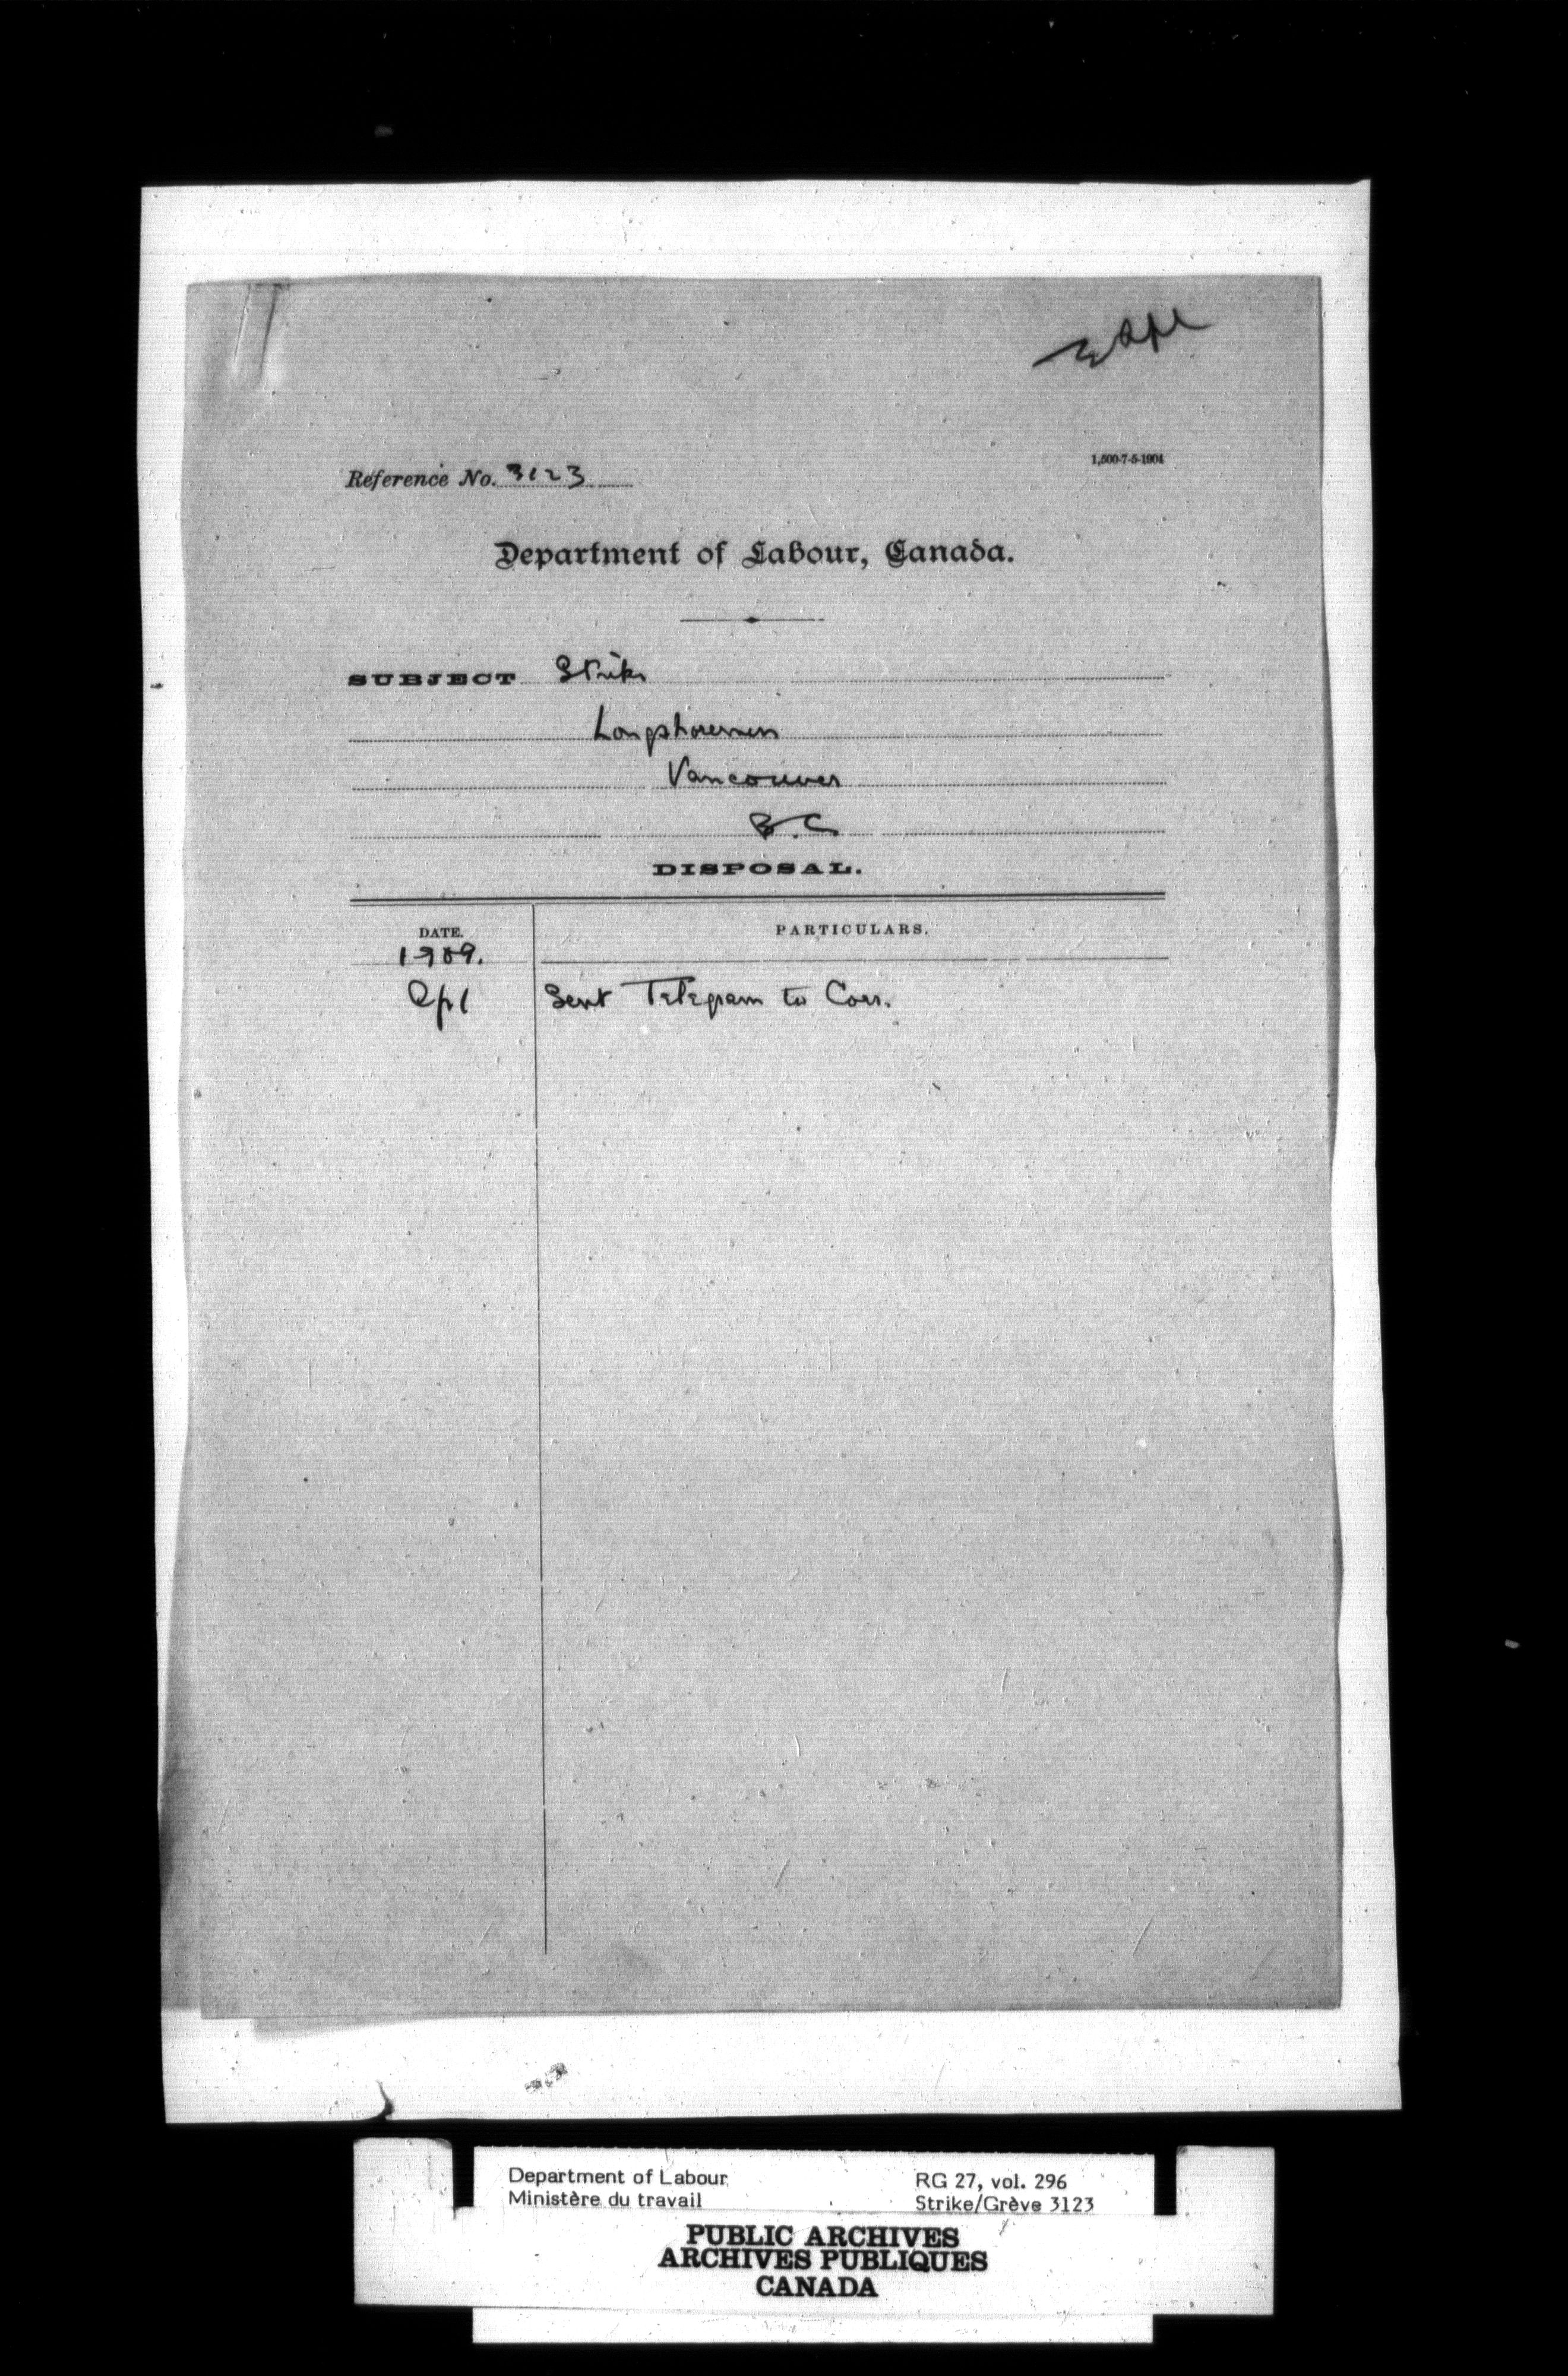 1,500-7-5-1904
Reference No. 3123
Department of Labour, Canada.
SUBJECT Strike
Longshoremen
Vancouver
B.C
DISPOSAL.
DATE. PARTICULARS.
1909.
Apl Sent Telegram to Corr.
Department of Labour RG 27, vol. 296
Ministère du travail Strike/Grève 3123
PUBLIC ARCHIVES
ARCHIVES PUBLIQUES
CANADA